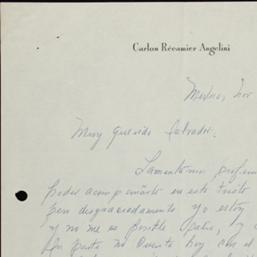 Carlos Récamier Angelini
Mexico, Nov
Muy querido Salvador:
Lamentamos profun
poder acompañarte en este triste
pero desgraciadamente yo estoy
y no me es posible salir, y
no cuento hoy con el